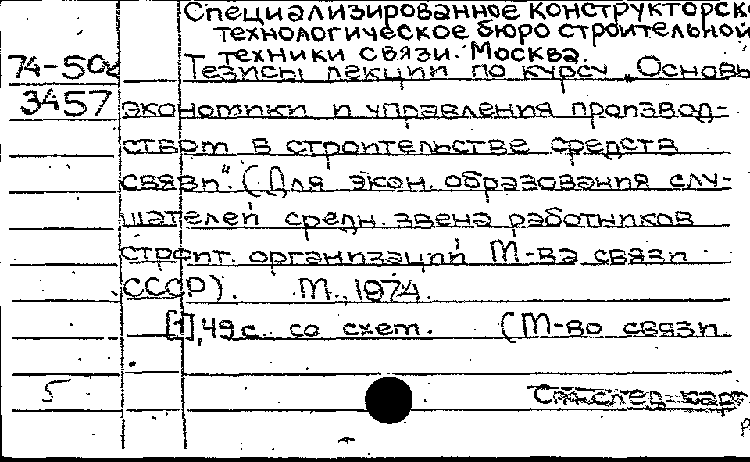 Специализированное конструкторско-
технологическое бюро строительной
техники связи. Москва.
74-50
Тезисы лекций по курсу „Основы
3457
экономики и управления производ=
ством в строительстве средств
связи". (Для экон. образования слу=
шателей средн. звена работников
строит. организаций М-ва связи
СССР). М., 1974.
[1], 49 с. со схем. (М-во связи
5
См. след. карт